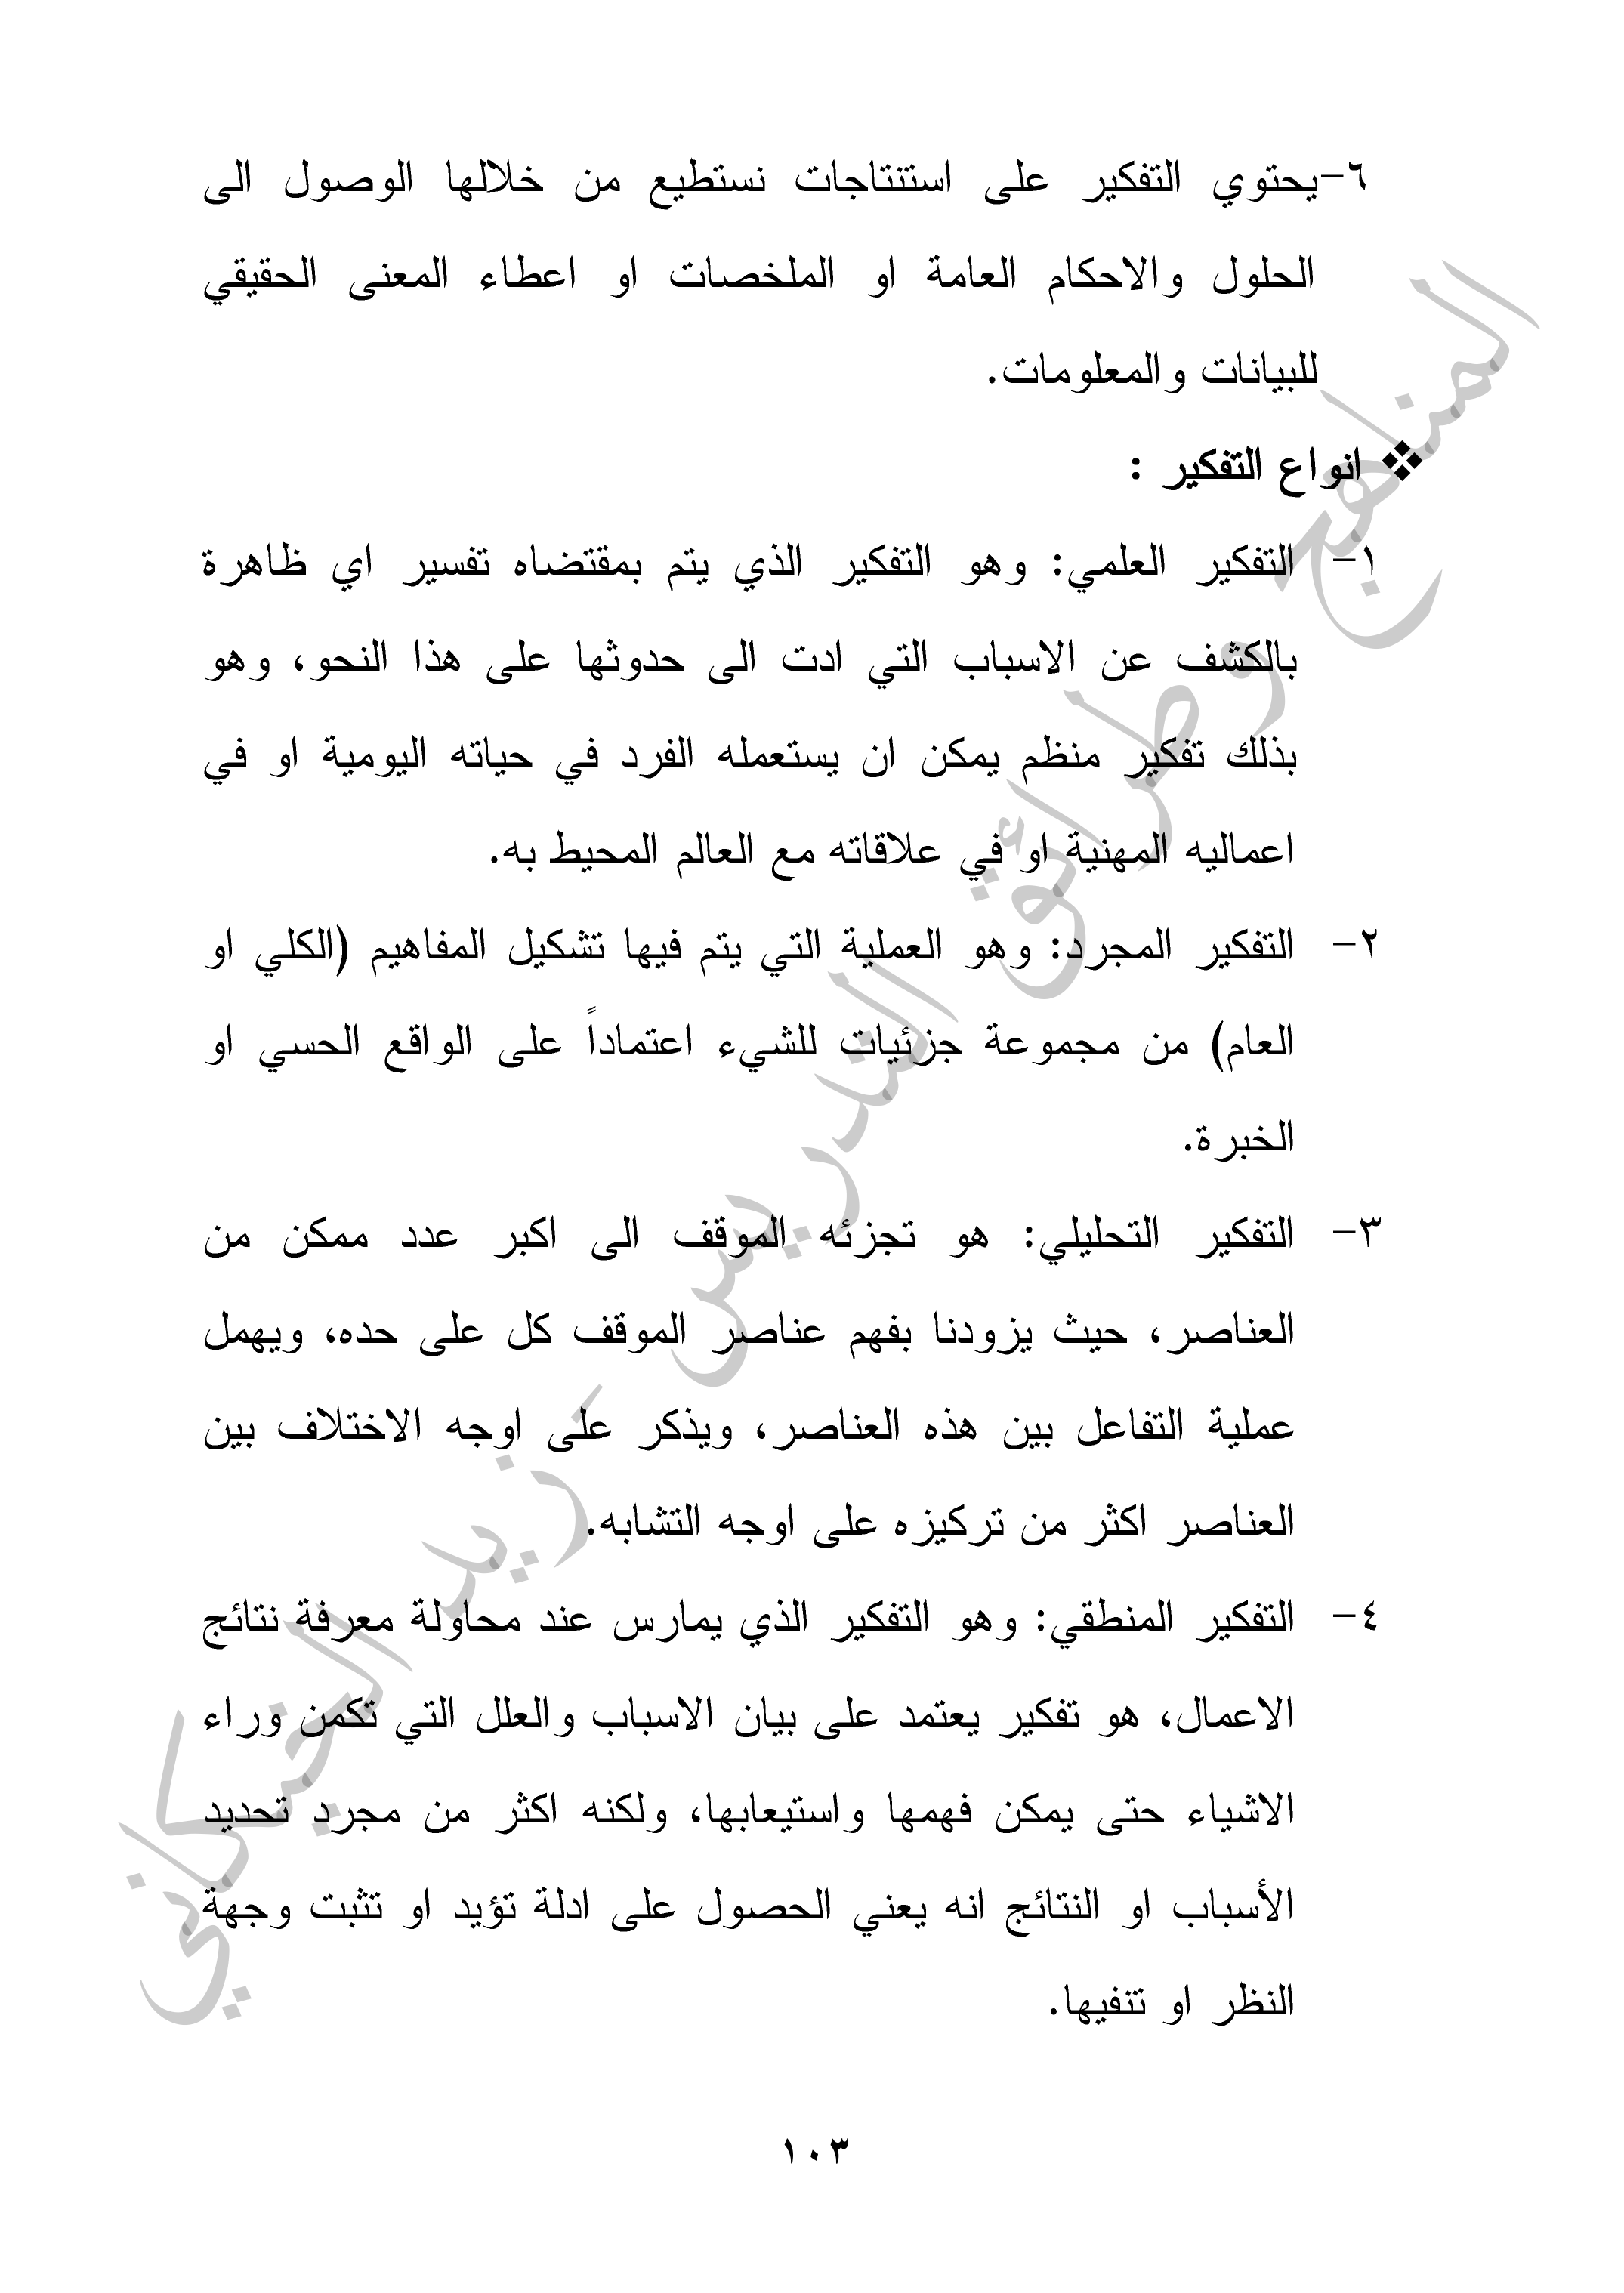 ٦-يحتوي التفكير على استنتاجات نستطيع من خلالها الوصول الى
الحلول والاحكام العامة او الملخصات او اعطاء المعنى الحقيقي
للبيانات والمعلومات.
❖ انواع التفكير :
١- التفكير العلمي: وهو التفكير الذي يتم بمقتضاه تفسير اي ظاهرة
بالكشف عن الاسباب التي ادت الى حدوثها على هذا النحو، وهو
بذلك تفكير منظم يمكن ان يستعمله الفرد في حياته اليومية او في
اعماليه المهنية او في علاقاته مع العالم المحيط به.
٢- التفكير المجرد: وهو العملية التي يتم فيها تشكيل المفاهيم (الكلي او
العام) من مجموعة جزئيات للشيء اعتماداً على الواقع الحسي او
الخبرة.
٣- التفكير التحليلي: هو تجزئه الموقف الى اكبر عدد ممكن من
العناصر، حيث يزودنا بفهم عناصر الموقف كل على حده، ويهمل
عملية التفاعل بين هذه العناصر، ويذكر على اوجه الاختلاف بين
العناصر اكثر من تركيزه على اوجه التشابه.
٤- التفكير المنطقي: وهو التفكير الذي يمارس عند محاولة معرفة نتائج
الاعمال، هو تفكير يعتمد على بيان الاسباب والعلل التي تكمن وراء
الاشياء حتى يمكن فهمها واستيعابها، ولكنه اكثر من مجرد تحديد
الأسباب او النتائج انه يعني الحصول على ادلة تؤيد او تثبت وجهة
النظر او تنفيها.
١٠٣
المناهج وطرائق التدريس - زيد الخيكاني